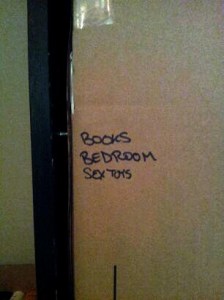 BOOKS
BEDROOM
SEX TOYS